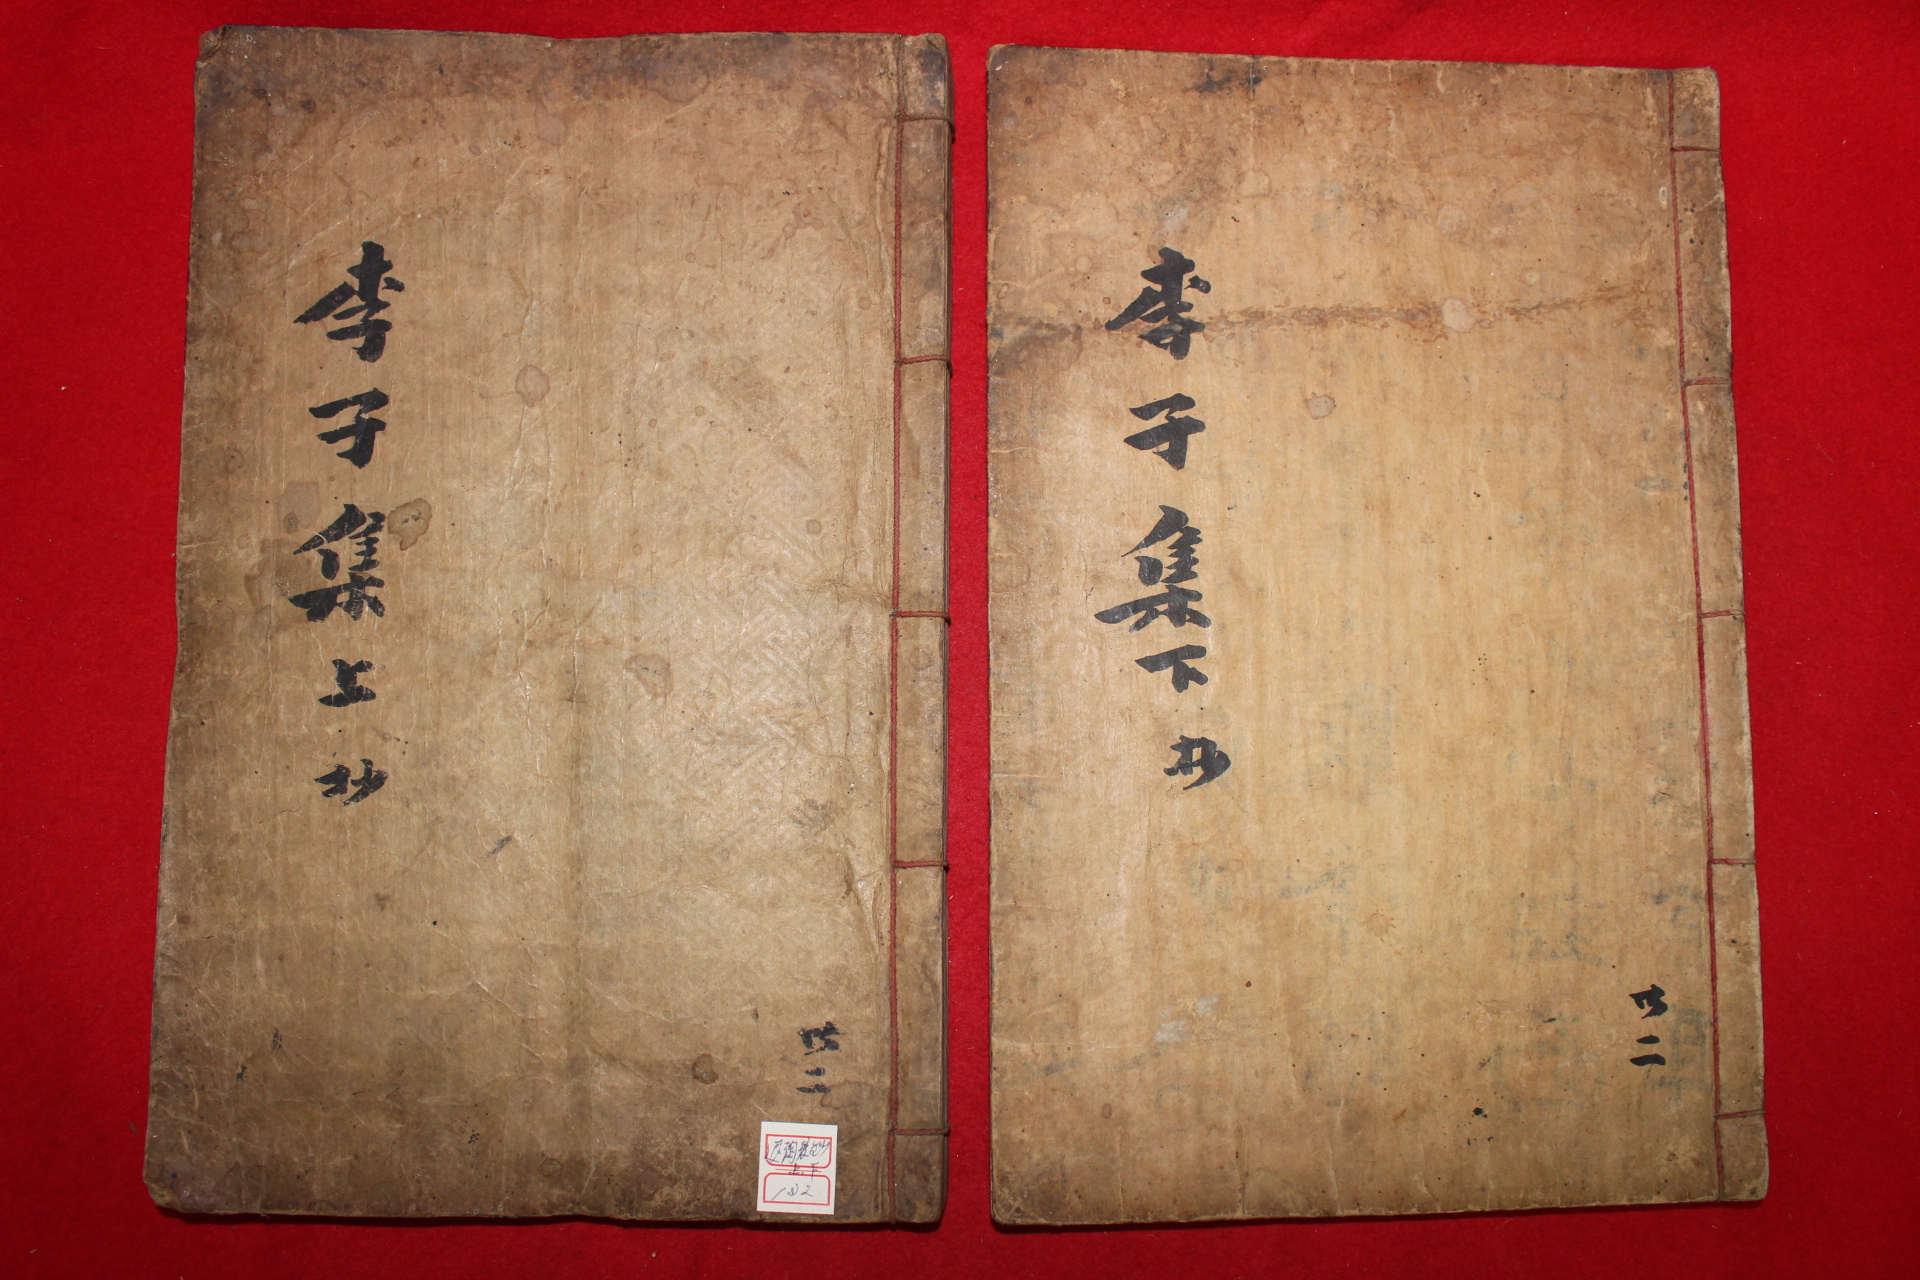 李子集上抄
共二
上下
李子集下抄
共二